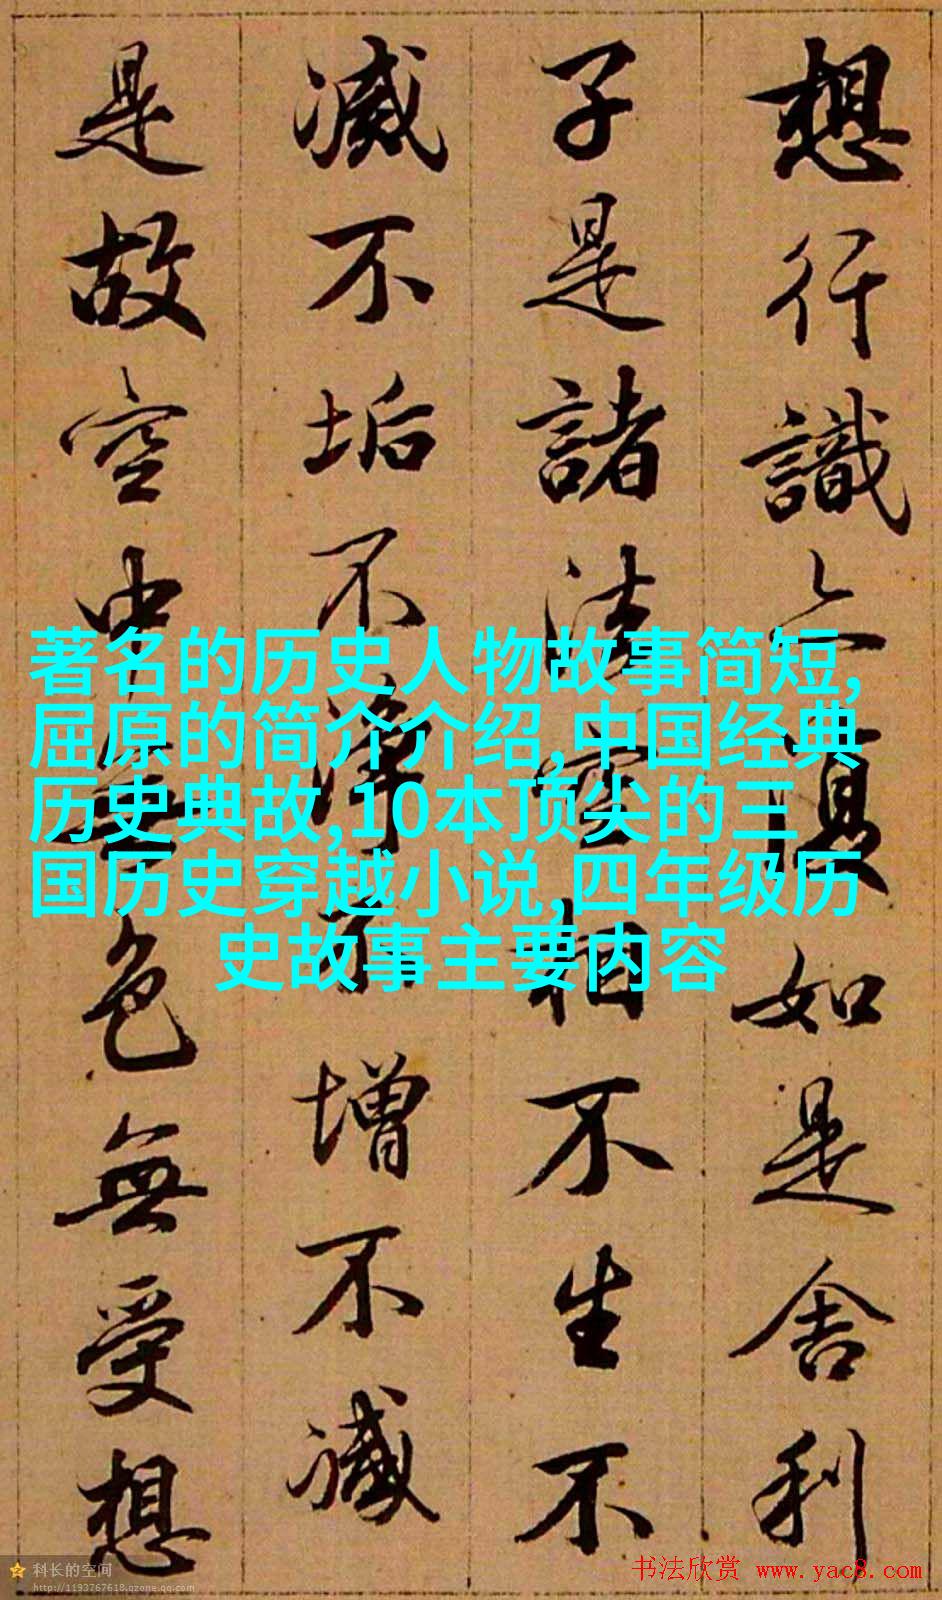 想行識亦復如是舍利
子是諸法空相不生不
滅不垢不淨不增不減
是故空中無色無受想
著名的历史人物故事简短,
屈原的简介介绍,中国经典
历史典故,10本顶尖的三
国历史穿越小说,四年级历
史故事主要内容
科长的空间
http://1193767618.qzone.qq.com
书法欣赏 www.yac8.com